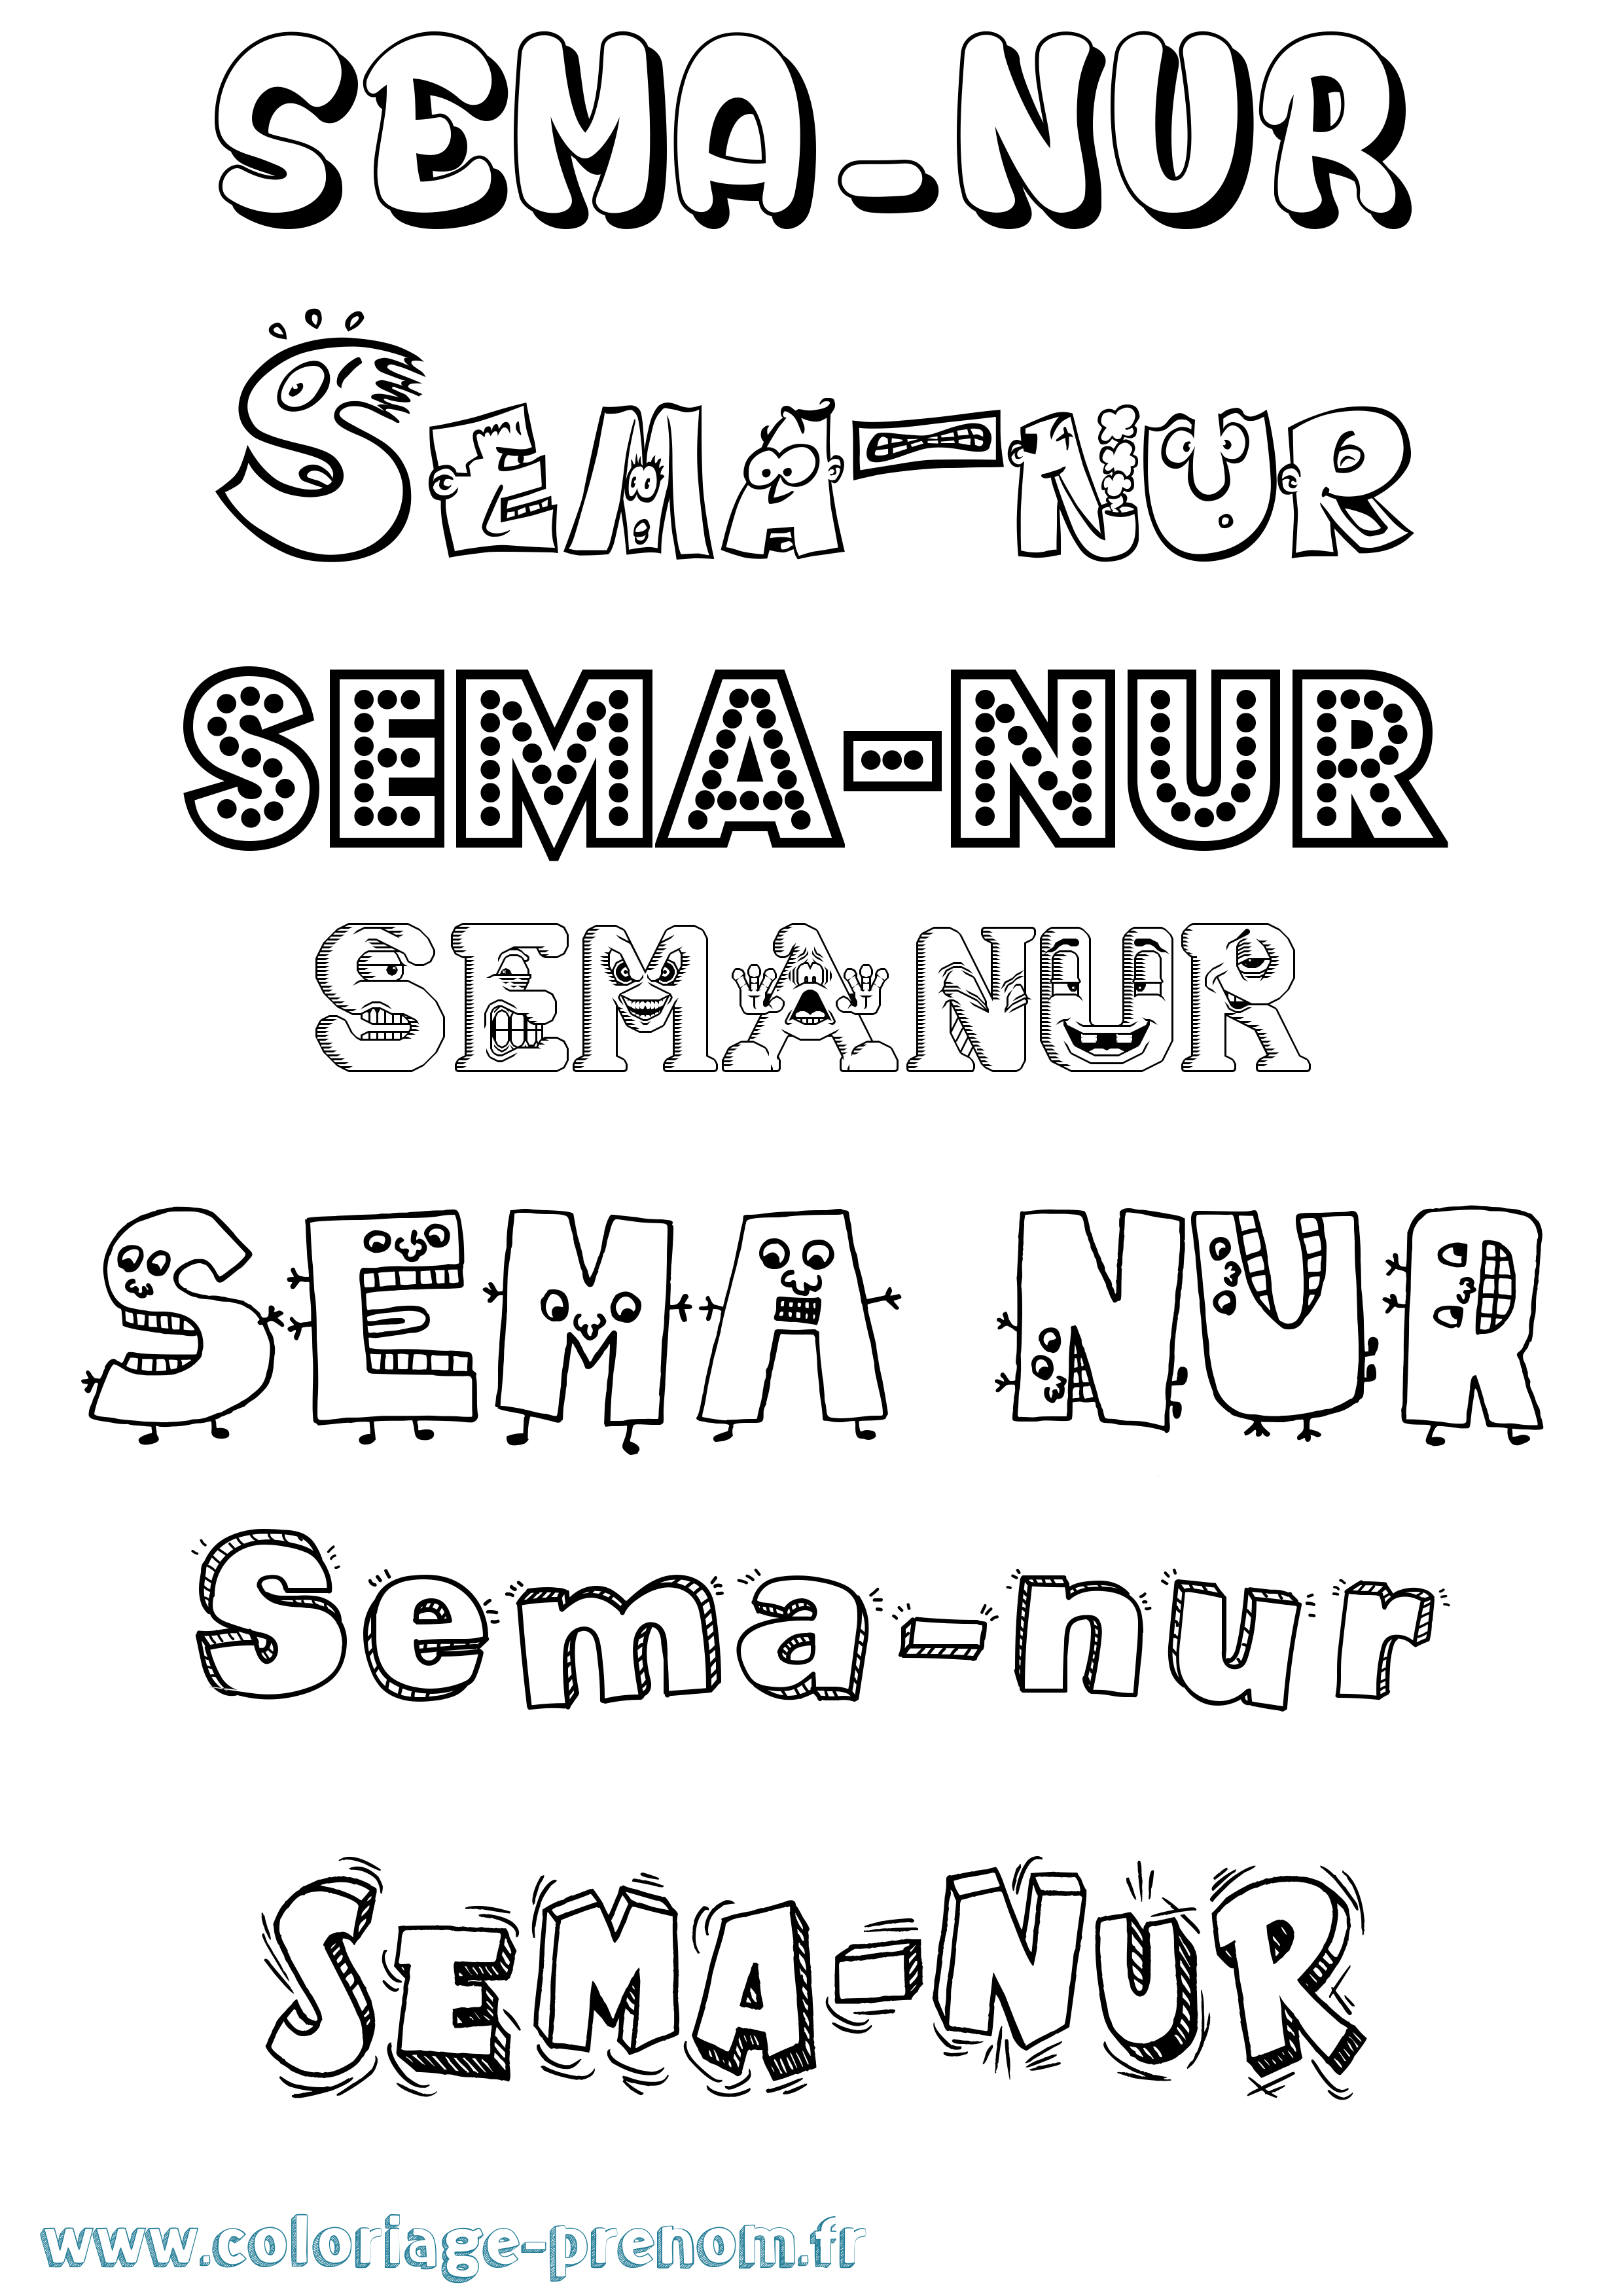 SEMA-NUR
Sema-nur
SEMA-NUR
SEMANUR
SEMA NUR
Sema-nur
SEMA-NUR
www.coloriage-prenom.fr